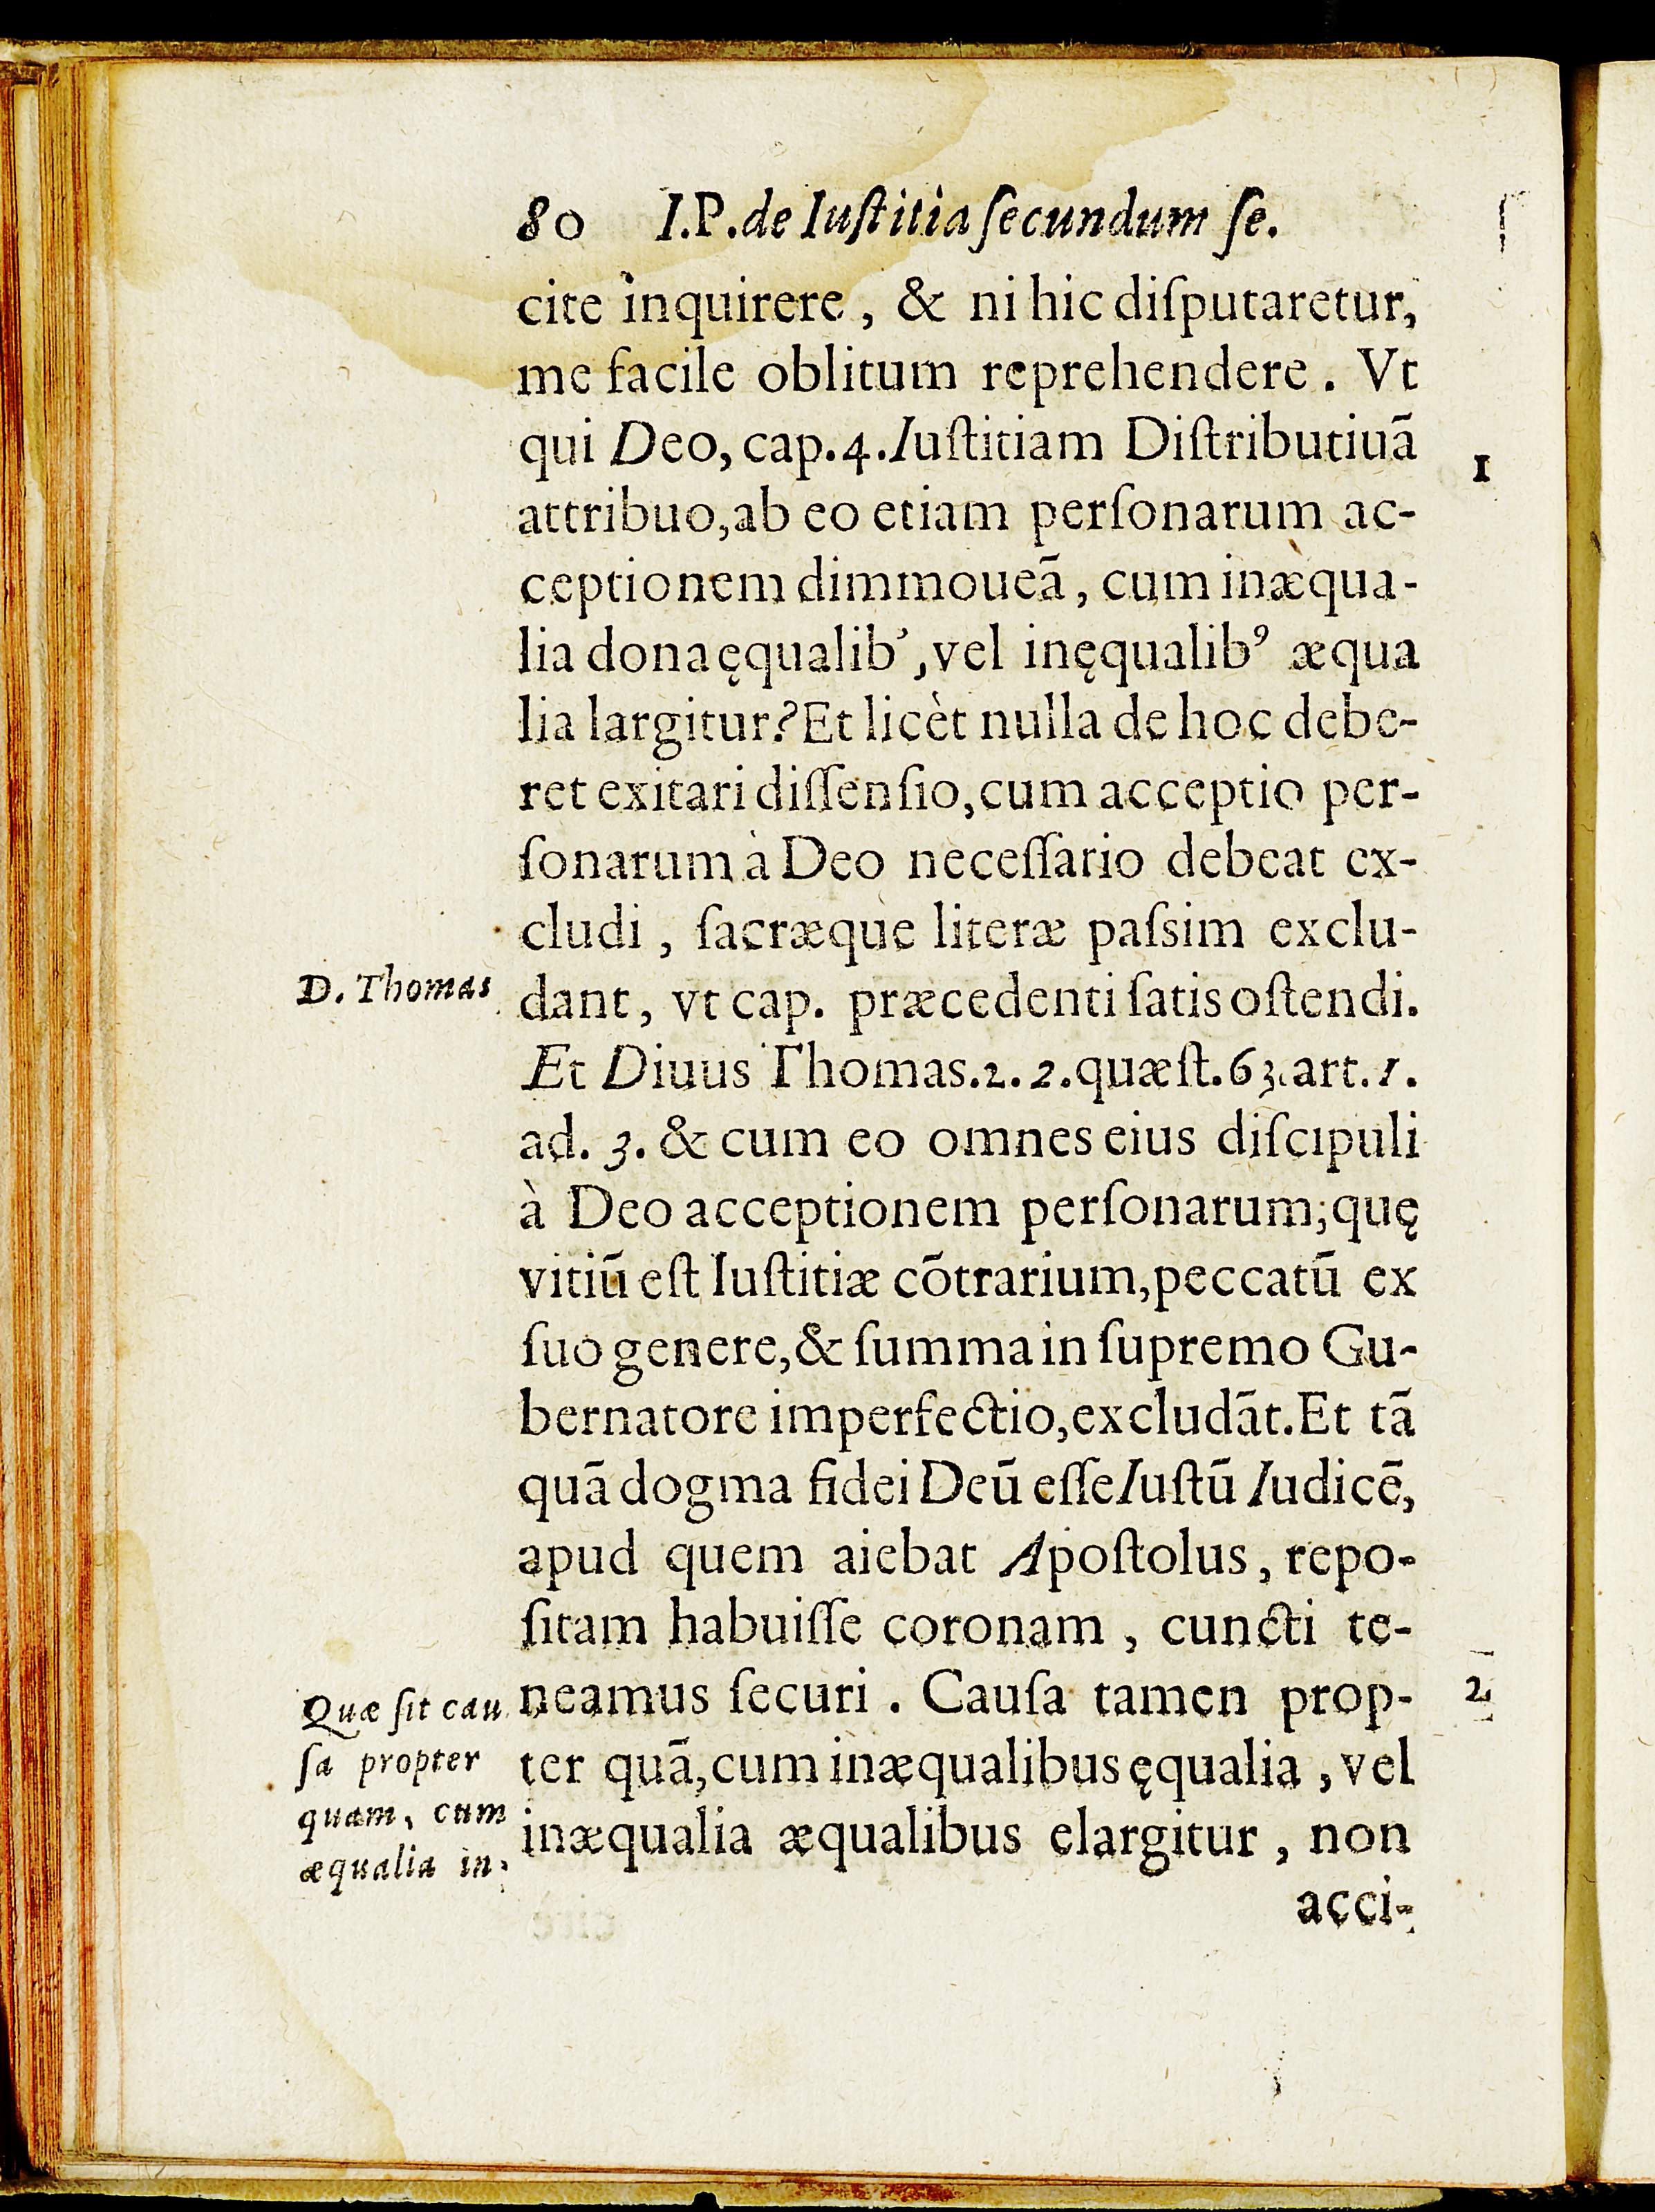 80 I.P. de Iuſtitia ſecundum ſe.
cite inquirere, & ni hic diſputaretur,
me facile oblitum reprehendere. Vt
qui Deo, cap. 4. Iuſtitiam Diſtributiuã
1
attribuo, ab eo etiam perſonarum ac-
ceptionem dimmoueã, cum inæqua-
lia dona ęqualibꝰ, vel inęqualibꝰ æqua
lia largitur? Et licèt nulla de hoc debe-
ret exitari diſſenſio, cum acceptio per-
ſonarum à Deo neceſſario debeat ex-
cludi, ſacræque literæ paſsim exclu-
D. Thomas
dant, vt cap. præcedenti ſatis oſtendi.
Et Diuus Thomas. 2. 2. quæſt. 63. art. 1.
ad. 3. & cum eo omnes eius diſcipuli
à Deo acceptionem perſonarum; quę
vitiũ eſt Iuſtitiæ cõtrarium, peccatũ ex
ſuo genere, & ſumma in ſupremo Gu-
bernatore imperfectio, excludãt. Et tã
quã dogma fidei Deũ eſſe Iuſtũ Iudicẽ,
apud quem aiebat Apoſtolus, repo-
ſitam habuiſſe coronam, cuncti te-
neamus ſecuri. Cauſa tamen prop-
2
ter quã, cum inæqualibus ęqualia, vel
inæqualia æqualibus elargitur, non
Quæ ſit cau
ſa propter
quam, cum
æqualia in-
acci-